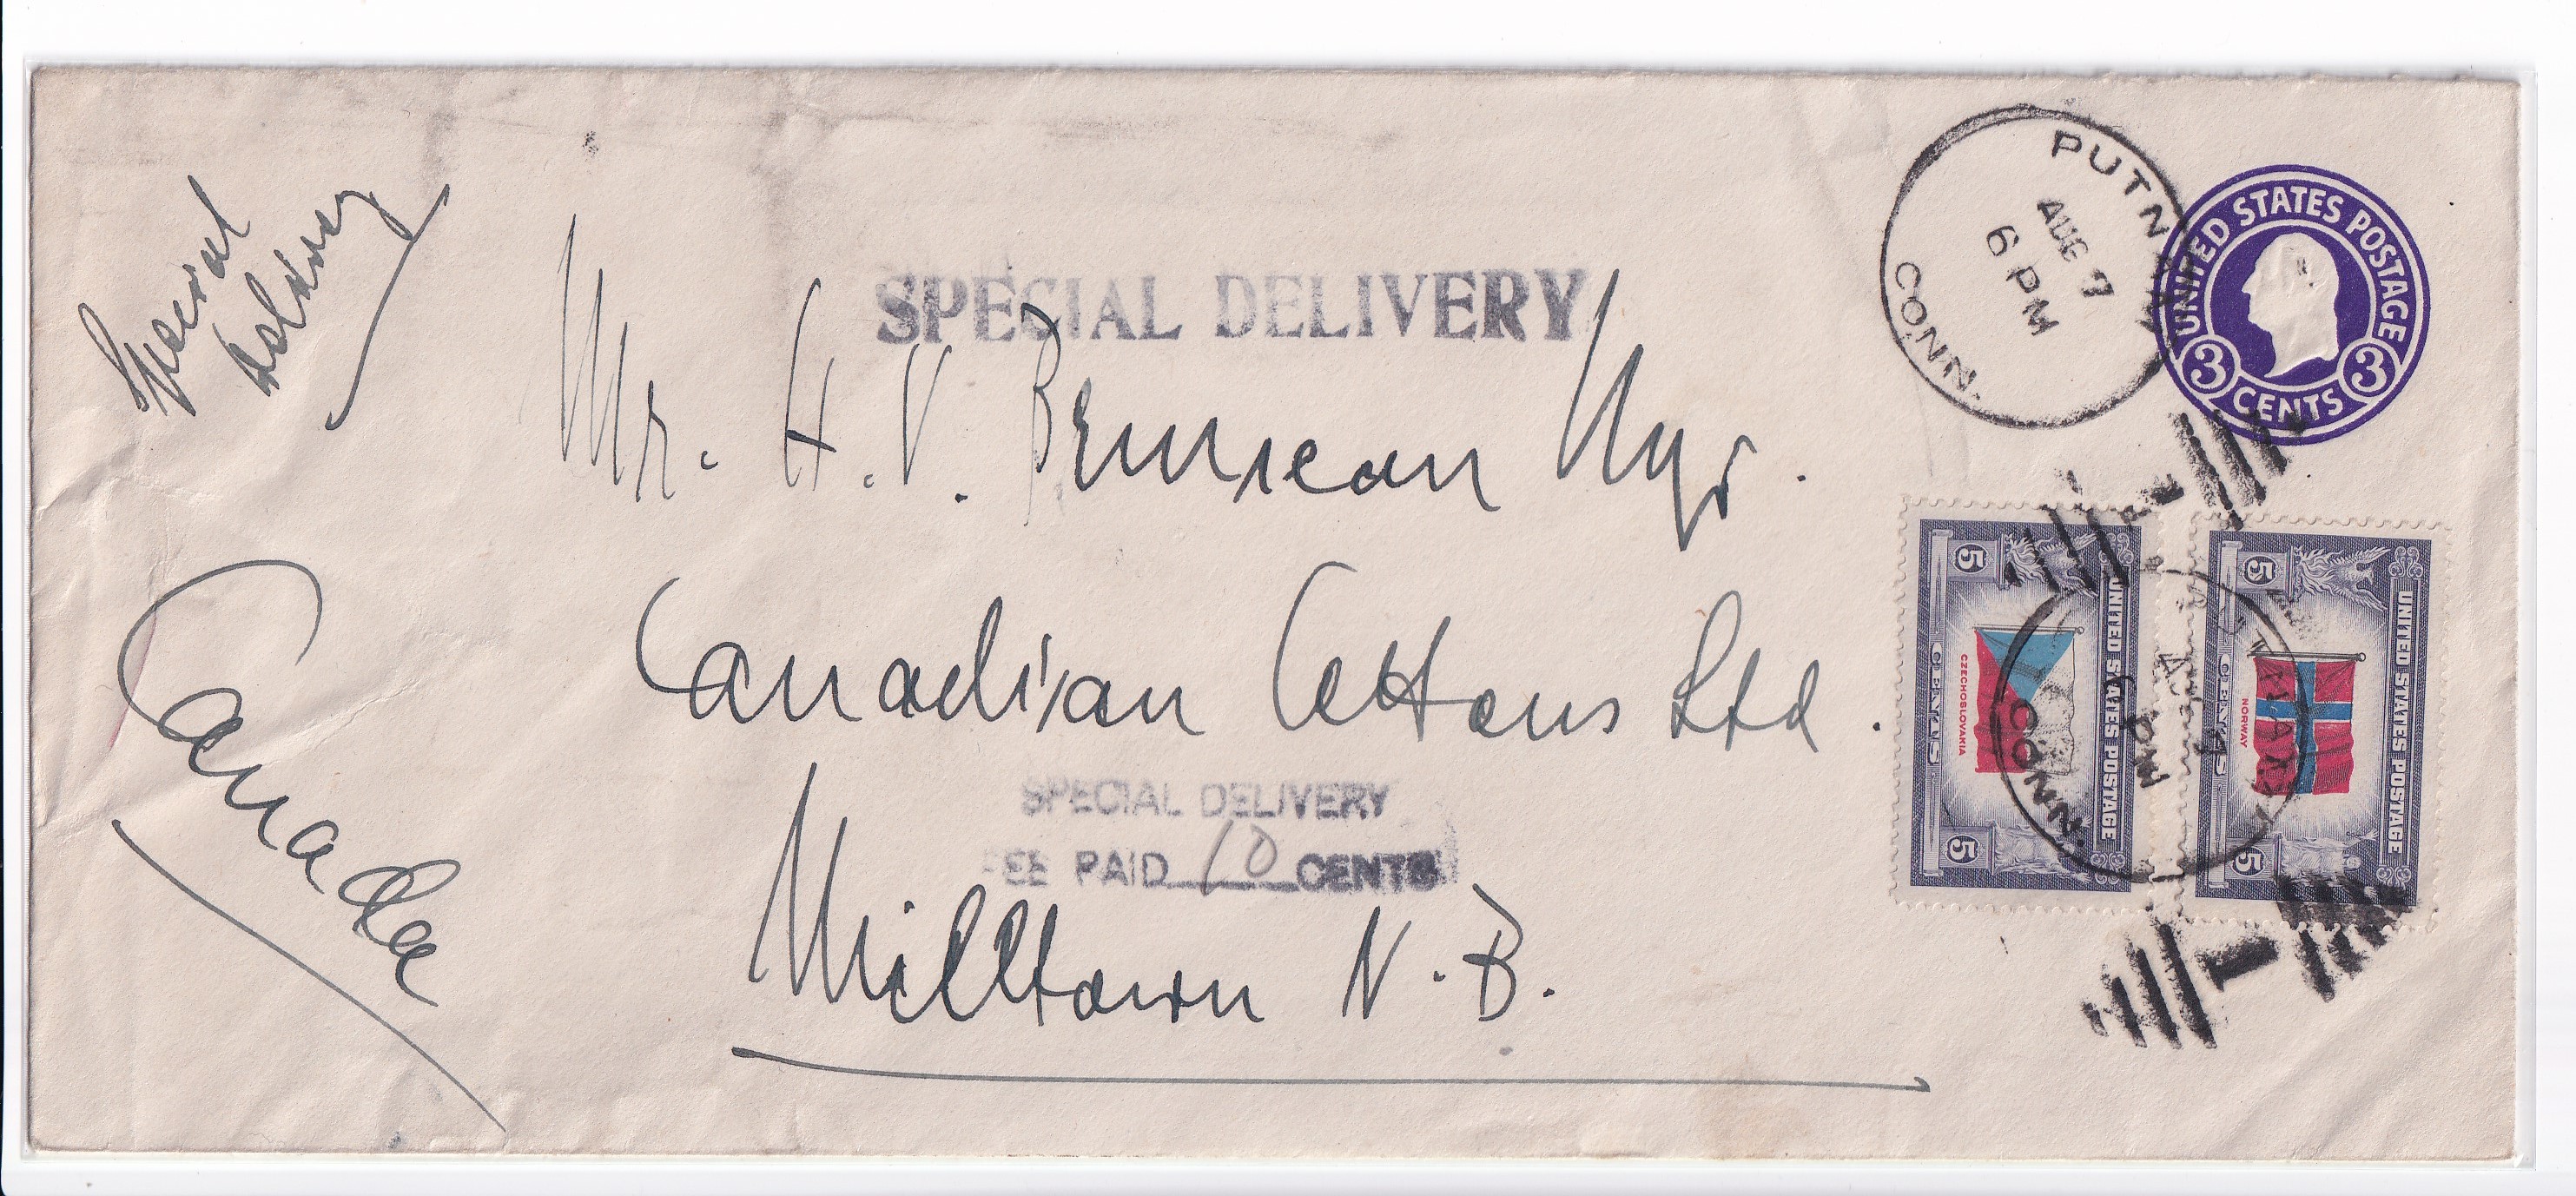 Special
delivery
SPECIAL DELIVERY
Mr. H. V. Mgr.
Canadian Cottons Ltd.
SPECIAL DELIVERY
FEE PAID 10 CENTS
Milltown N. B.
Canada
PUTNAM
AUG 7
6 PM
CONN.
UNITED STATES POSTAGE
3 CENTS 3
UNITED STATES POSTAGE
5 CENTS 5
CZECHOSLOVAKIA
UNITED STATES POSTAGE
5 CENTS 5
NORWAY
PUTNAM
AUG 7
6 PM
CONN.
1